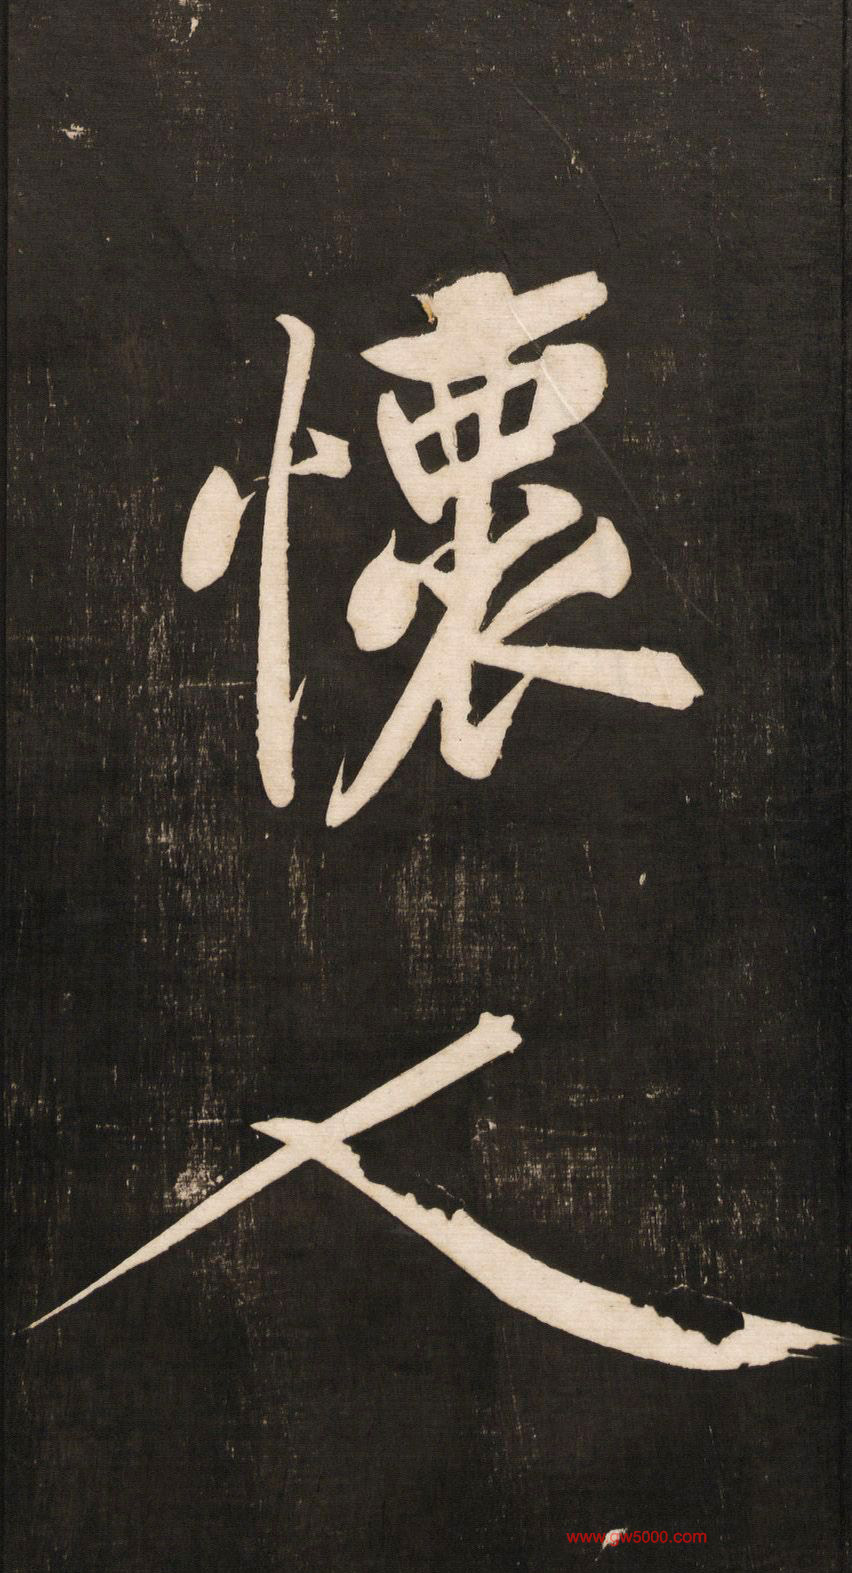 懷
人
www.gw5000.com